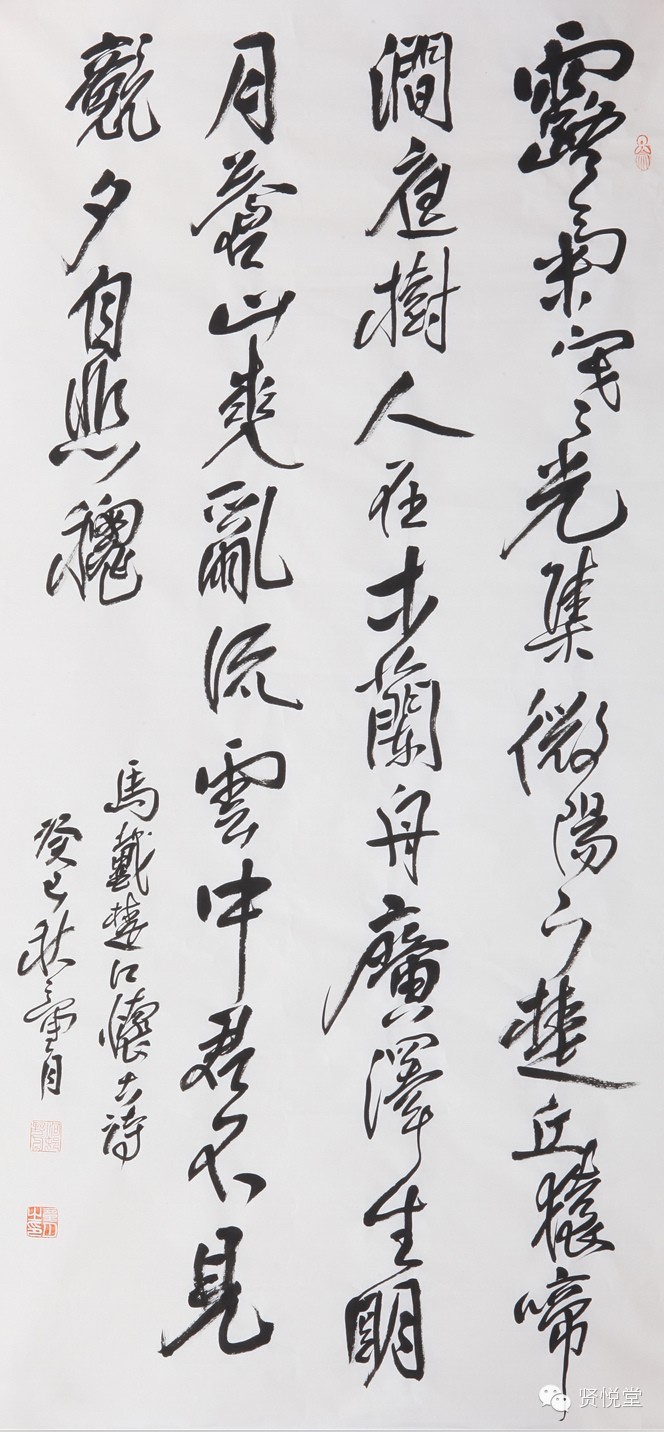 露氣寒光集微陽下楚丘猿啼
澗庭樹人在木蘭舟廣澤生明
月蒼山夾亂流雲中君不見
競夕自悲穐
馬戴楚江懷古詩
癸巳秋月
贤悦堂